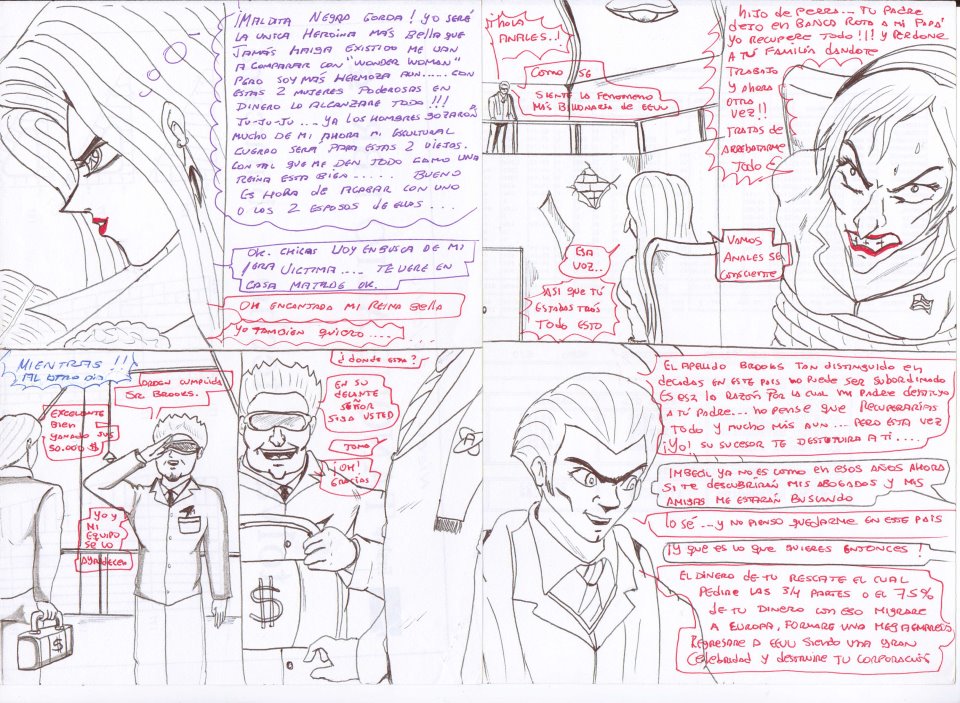 ¡MALDITA NEGRA GORDA! YO SERÉ
LA UNICA HEROINA MÁS BELLA QUE
JAMÁS HAIGA EXISTIDO ME VAN
A COMPARAR CON "WONDER WOMAN"
PERO SOY MÁS HERMOZA AUN..... CON
ESTAS 2 MUJERES PODEROSAS EN
DINERO LO ALCANZARE TODO!!!
JU-JU-JU... YA LOS HOMBRES GOZARON
MUCHO DE MI AHORA MI ESCULTURAL
CUERPO SERÁ PARA ESTAS 2 VIEJAS.
CON TAL QUE ME DEN TODO COMO UNA
REINA ESTA BIEN..... BUENO
ES HORA DE ACABAR CON UNO
O LOS 2 ESPOSOS DE ELLAS...
OK. CHICAS VOY EN BUSCA DE MI
1ERA VICTIMA.... TE VERE EN
CASA MATILDE OK.
OH ENCANTADA MI REINA BELLA
YO TAMBIEN QUIERO....
¡¡HOLA
ANALES..!
COMO SE
SIENTE LA FENOMENO
MÁS BILLONARIA DE EEUU
HIJO DE PERRA... TU PADRE
DEJO EN BANCA ROTA A MI PAPÁ
YO RECUPERE TODO!!! Y PERDONE
A TÚ FAMILIA DANDOTE
TRABAJO
Y AHORA
OTRA
VEZ!!
TRATAS DE
ARREBATARME
TODO
ESA
VOZ..
ASI QUE TÚ
ESTABAS TRÁS
TODO ESTO
VAMOS
ANALES SE
CONSCIENTE
MIENTRAS!!
AL OTRO DIA
¡ORDEN CUMPLIDA
SR BROOKS.
EXCELENTE
BIEN
GANADO SUS
50.000 $
YO Y
MI
EQUIPO
SE LO
AGRADECEN
¿DONDE ESTA?
EN SU
DELANTE
SEÑOR
SIGA USTED
TOMA
¡OH!
GRACIAS
$
$
EL APELLIDO BROOKS TAN DISTINGUIDO EN
DECADAS EN ESTE PAIS NO PUEDE SER SUBORDINADO
ES ESA LA RAZÓN POR LA CUAL MI PADRE DESTRUYO
A TÚ PADRE... NO PENSE QUE RECUPERARIAS
TODO Y MUCHO MÁS AUN... PERO ESTA VEZ
¡YO! SU SUCESOR TE DESTRUIRA A TI....
IMBECIL YA NO ES COMO EN ESOS AÑOS AHORA
SI TE DESCUBRIRÁN MIS ABOGADOS Y MIS
AMIGAS ME ESTARÁN BUSCANDO
LO SÉ...Y NO PIENSO QUEDARME EN ESTE PAIS
¡Y QUE ES LO QUE QUIERES ENTONCES!
EL DINERO DE TU RESCATE EL CUAL
PEDIRE LAS 3/4 PARTES O EL 75%
DE TU DINERO CON ESO MIGRARE
A EUROPA, FORMARE UNA MEGAEMPRESA
REGRESARE A EEUU SIENDO UNA GRAN
CELEBRIDAD Y DESTRUIRE TU CORPORACIÓN